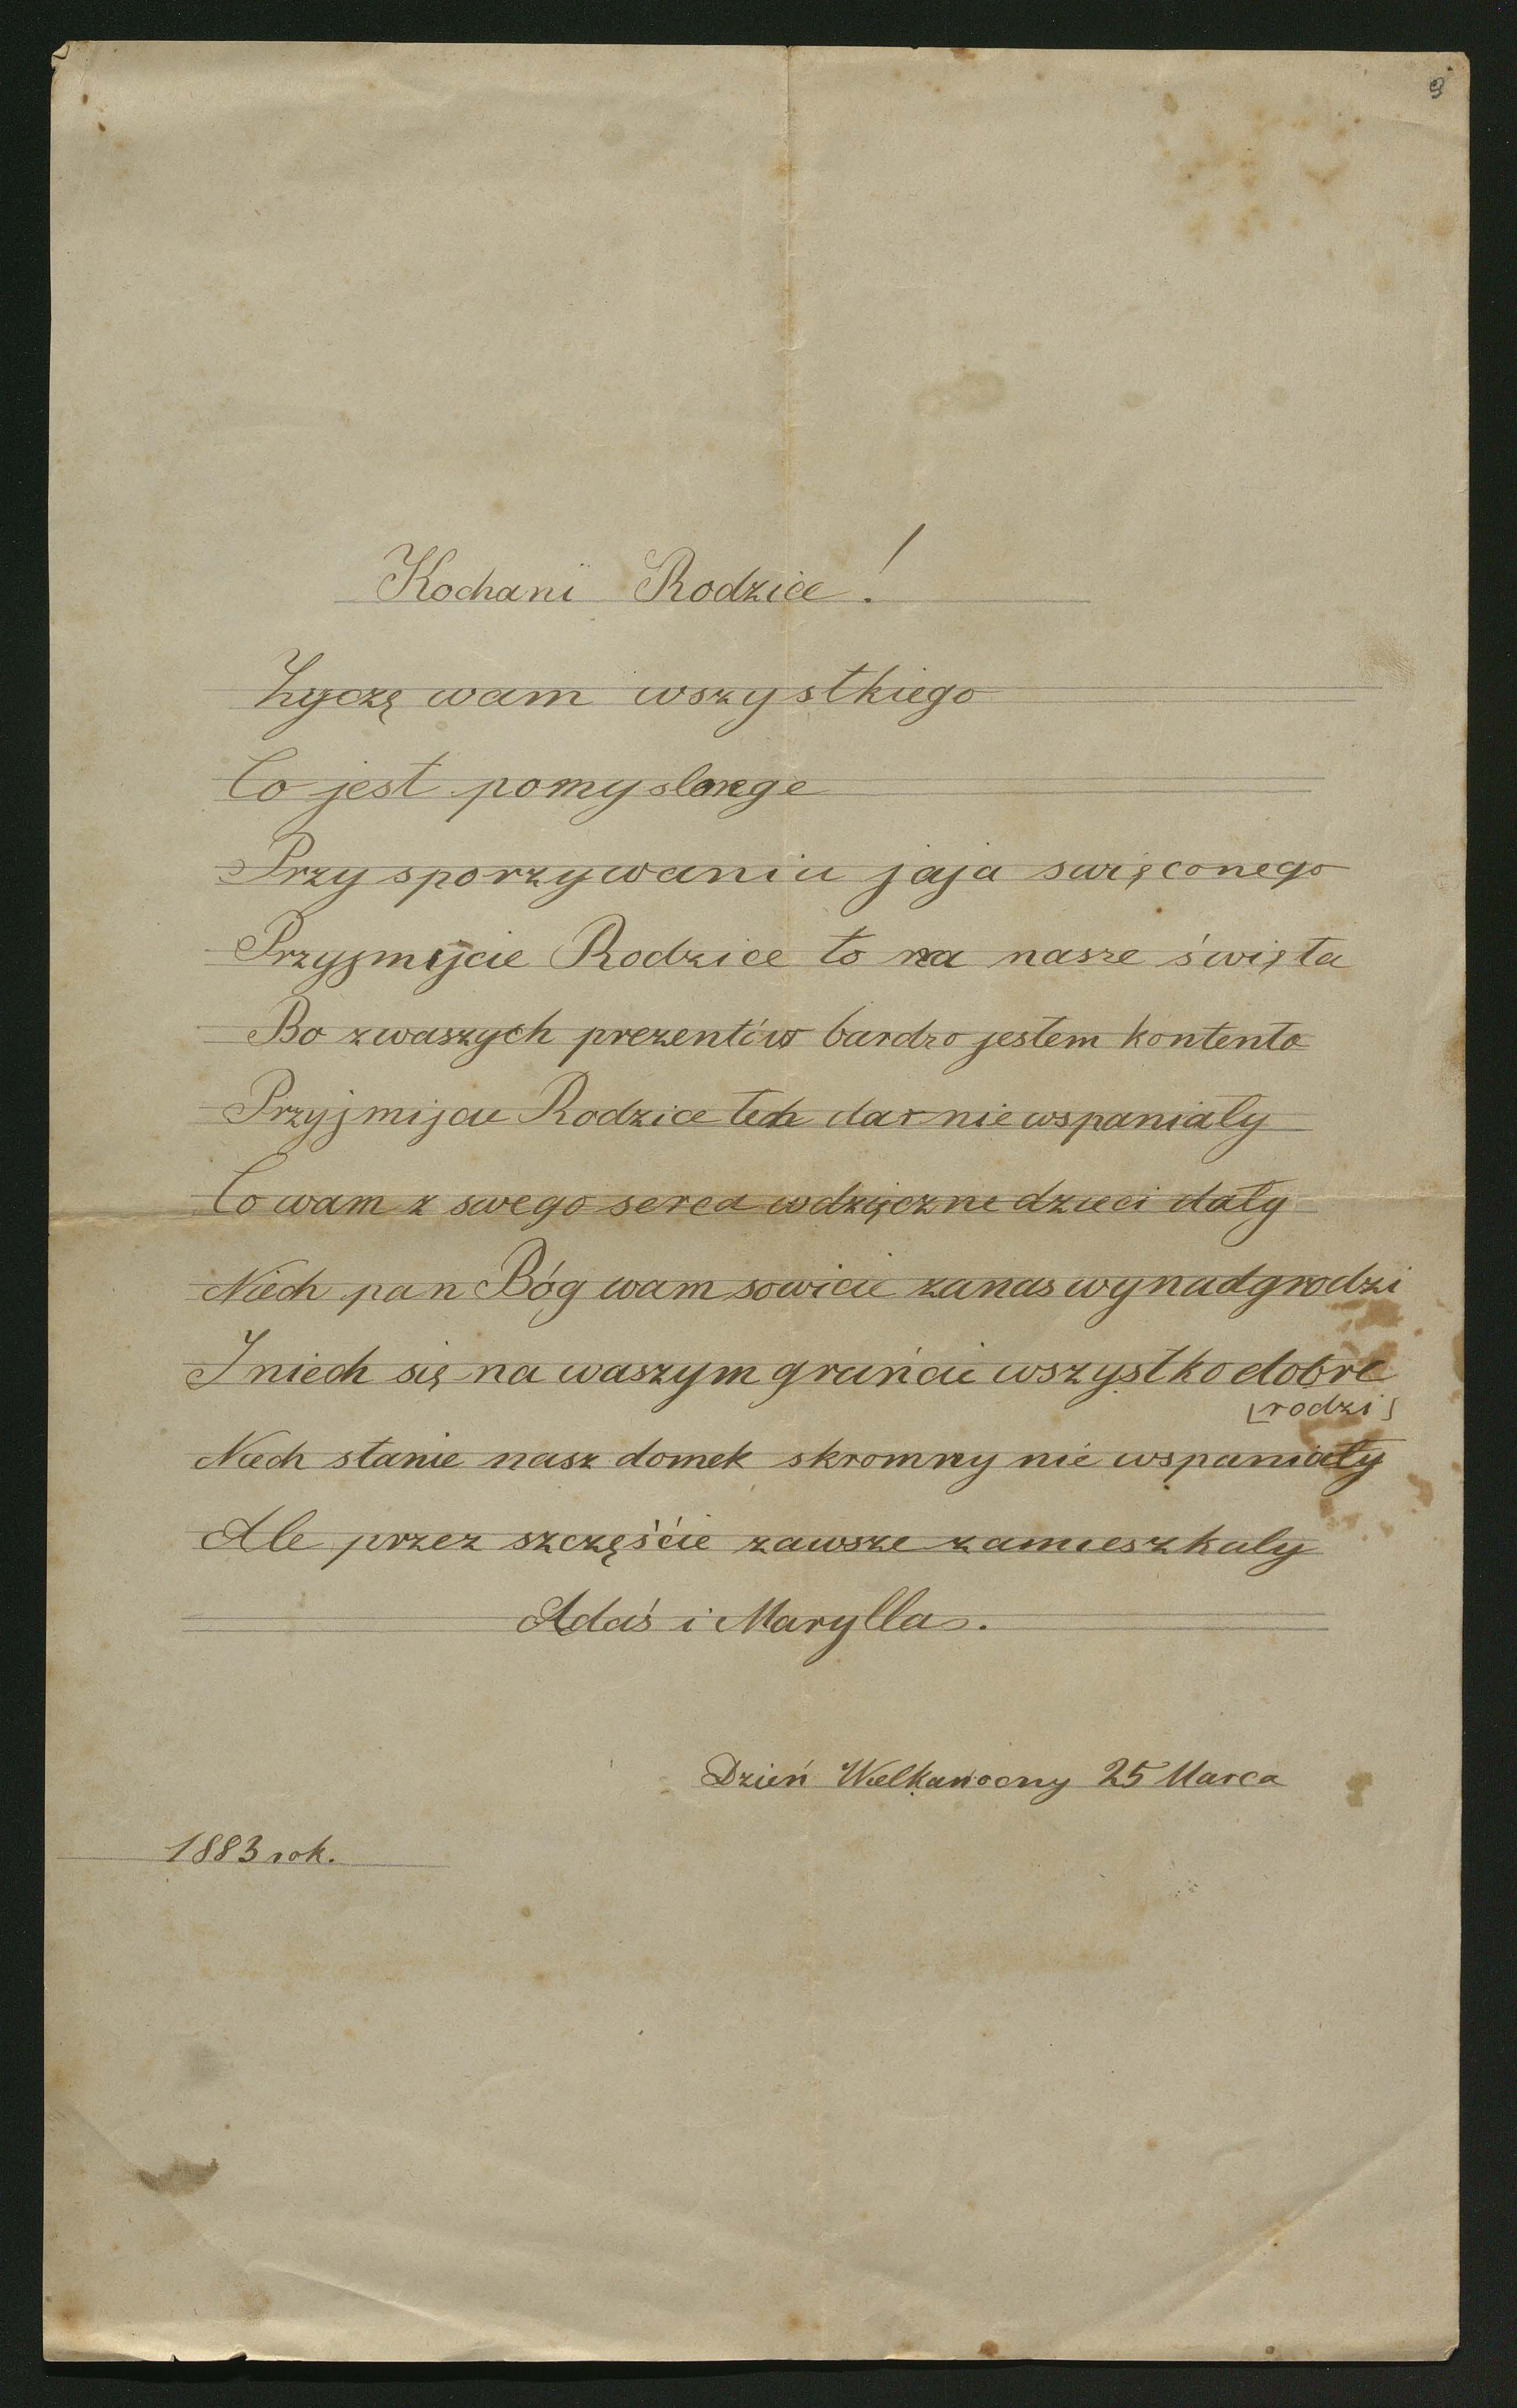 9
Kochani Rodzice!
Zyczę wam wszystkiego
Co jest
Przy sporzywaniu jaja swięconego
Przyjmijcie Rodzice to na nasze święta
Bo zwaszych prezentów bardzo jestem kontenta
Przyjmijcie Rodzice ten dar nie wspanialy
Co wam z swego serca wdzięczne dzieci dały
Niech pan Bóg wam sowicie zanas wynadgrodzi
I niech się na waszym gruńcie wszystko dobre
rodzi
Niech stanie nasz domek skromny nie wspaniały
Ale przez szczęście zawsze zamieszkaly
Adaś i Marylla.
Dzień Wielkanocny 25 Marca
1883 rok.